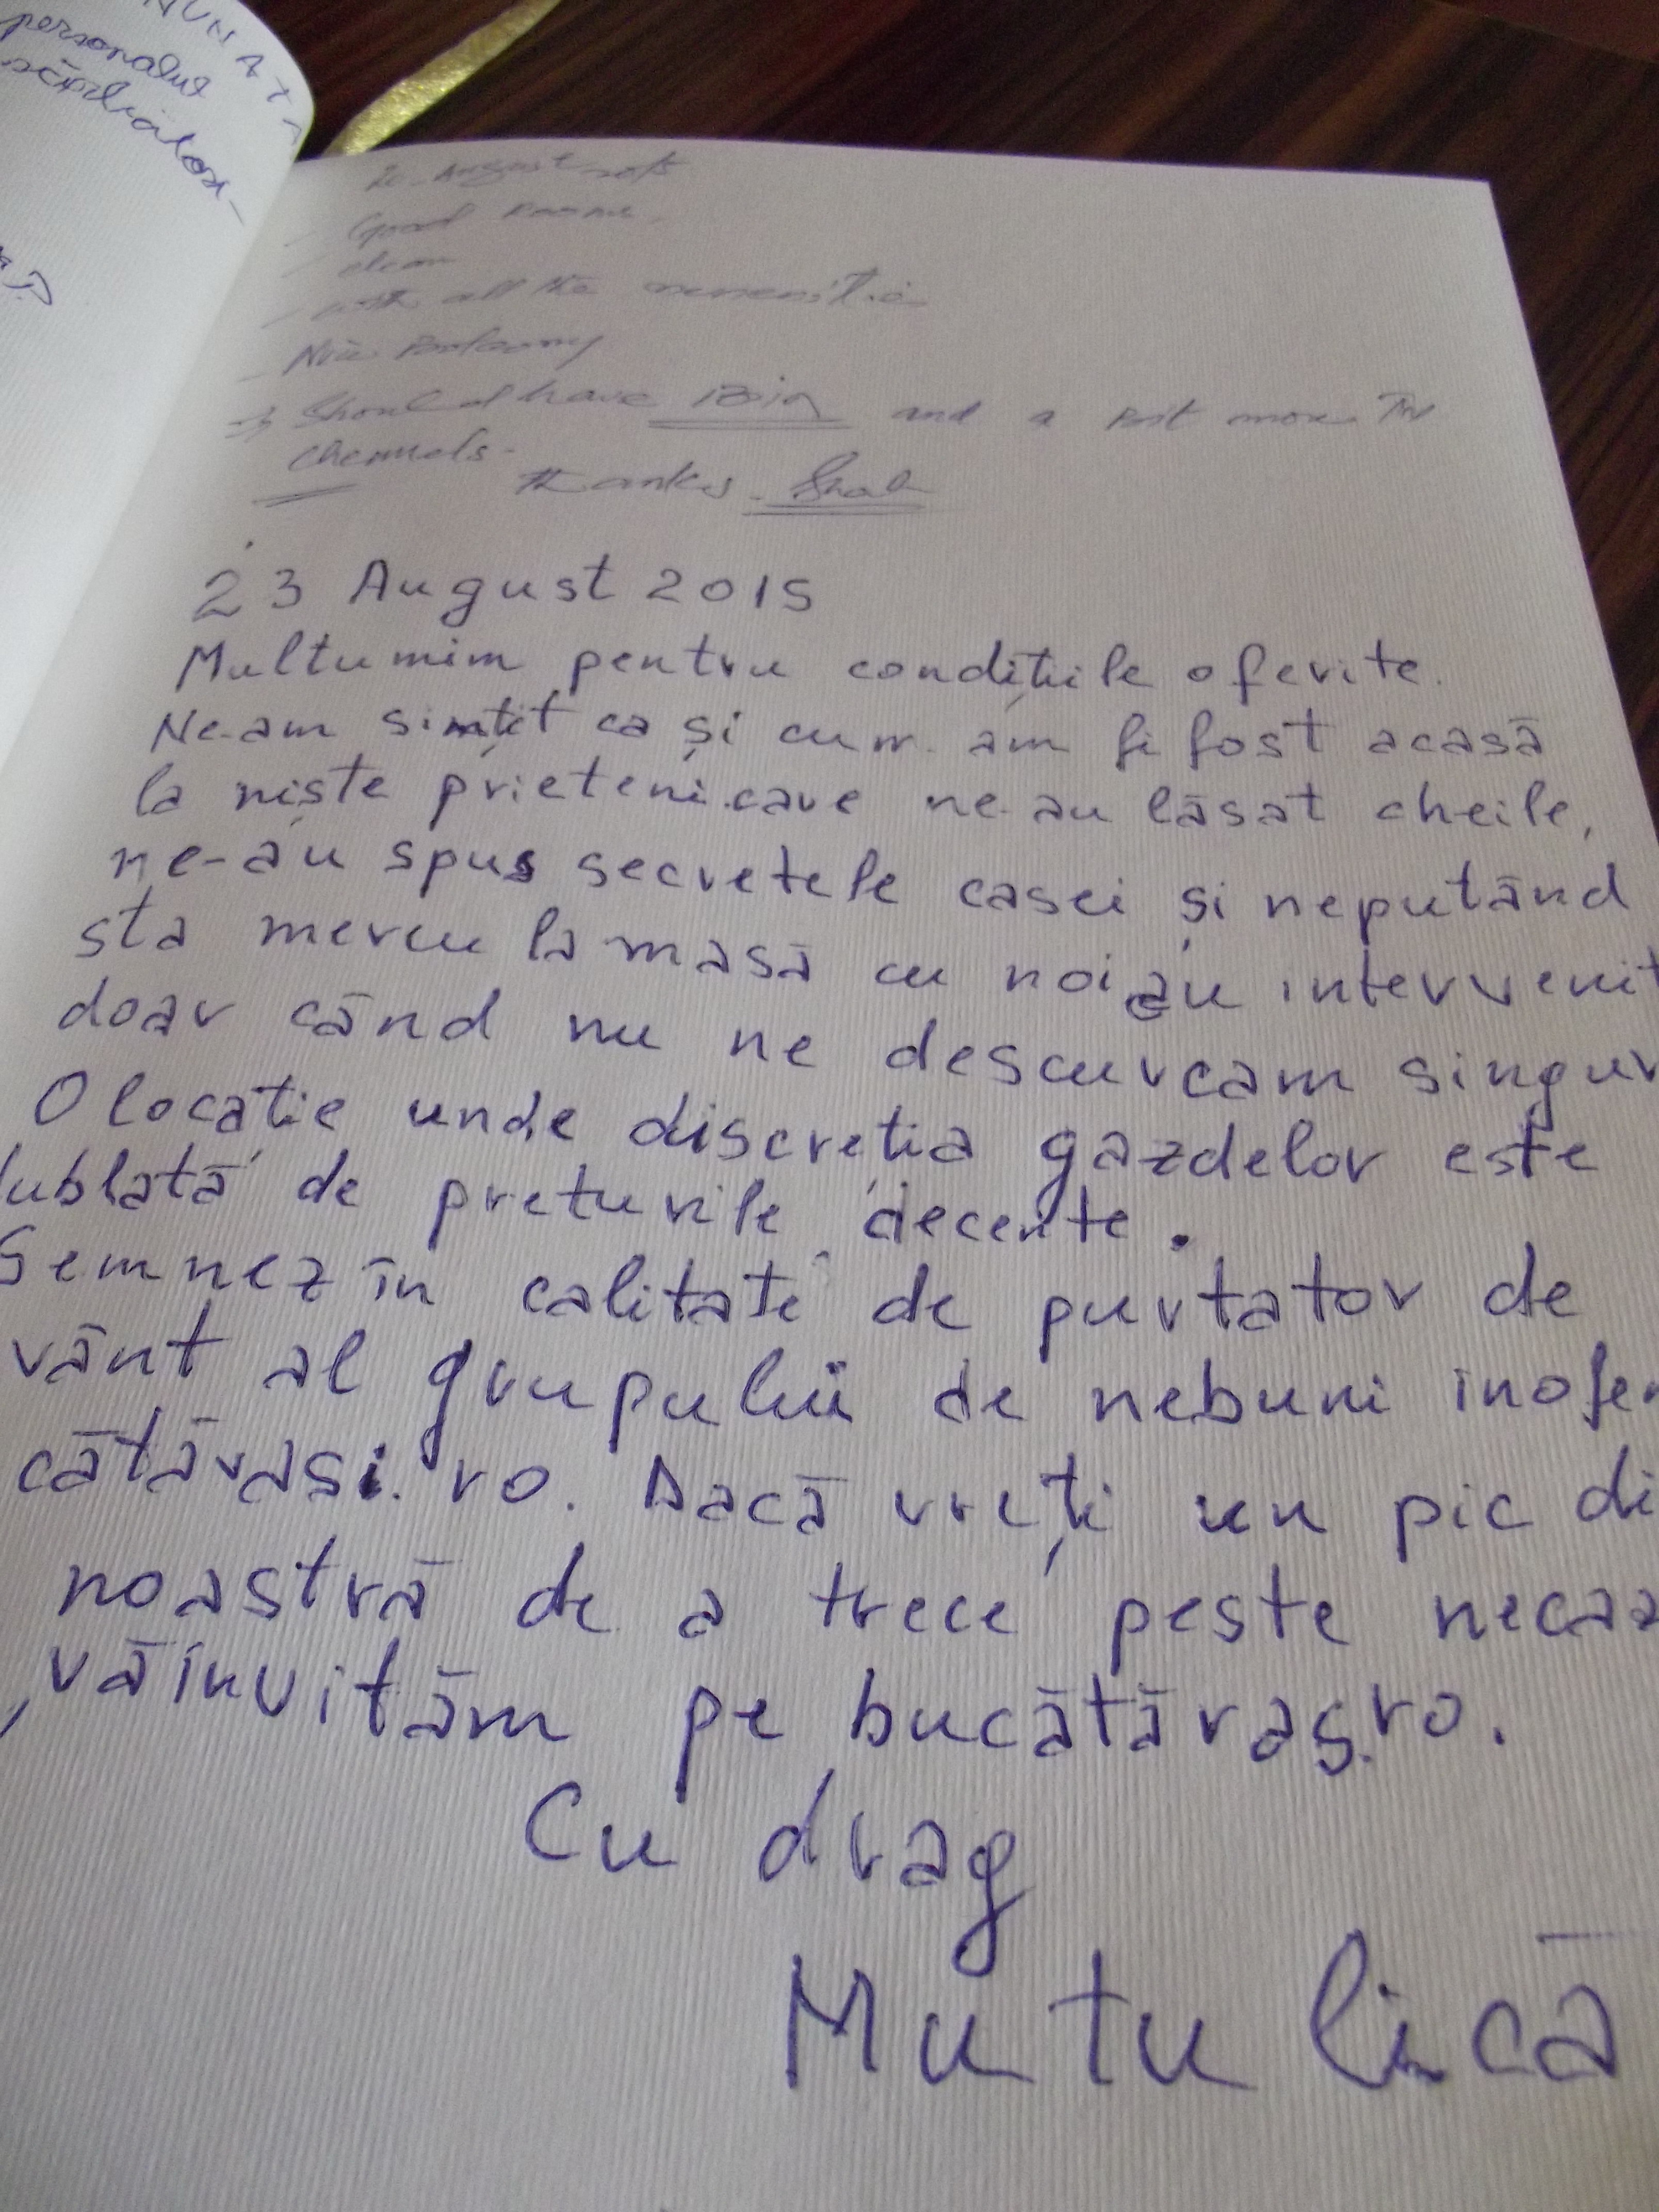 NUNAT
personalul
20 August 2015
- Good Rooms
- clean
- with all the
- Nice Balcony
→ Should have and a Bit more TV
channels.
thanks.
23 August 2015
Multumim pentru condițiile oferite.
Ne-am simțit ca și cum am fi fost acasă
la niște prieteni care ne-au lăsat cheile,
ne-au spus secretele casei și neputând
sta mereu la masă cu noi au intervenit
doar când nu ne descurcam singur
O locație unde discreția gazdelor este
dublată de preturile decente.
Semnez în calitate de purtator de
vânt al grupului de nebuni inofen
cătărasi.ro. Dacă vreți un pic di
noastră de a trece peste necaz
, vă invităm pe bucătăraș.ro.
Cu drag
Mutulică